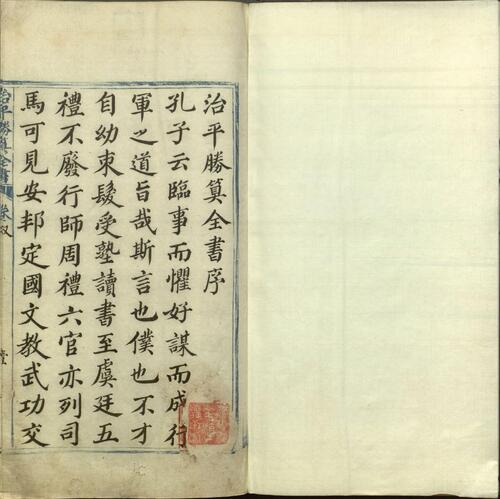 治平勝算全書序
孔子云臨事而懼好謀而成行
軍之道旨哉斯言也僕也不才
自幼束髮受塾讀書至虞廷五
禮不廢行師周禮六官亦列司
馬可見安邦定國文教武功交
治平勝算全書
叙
壹